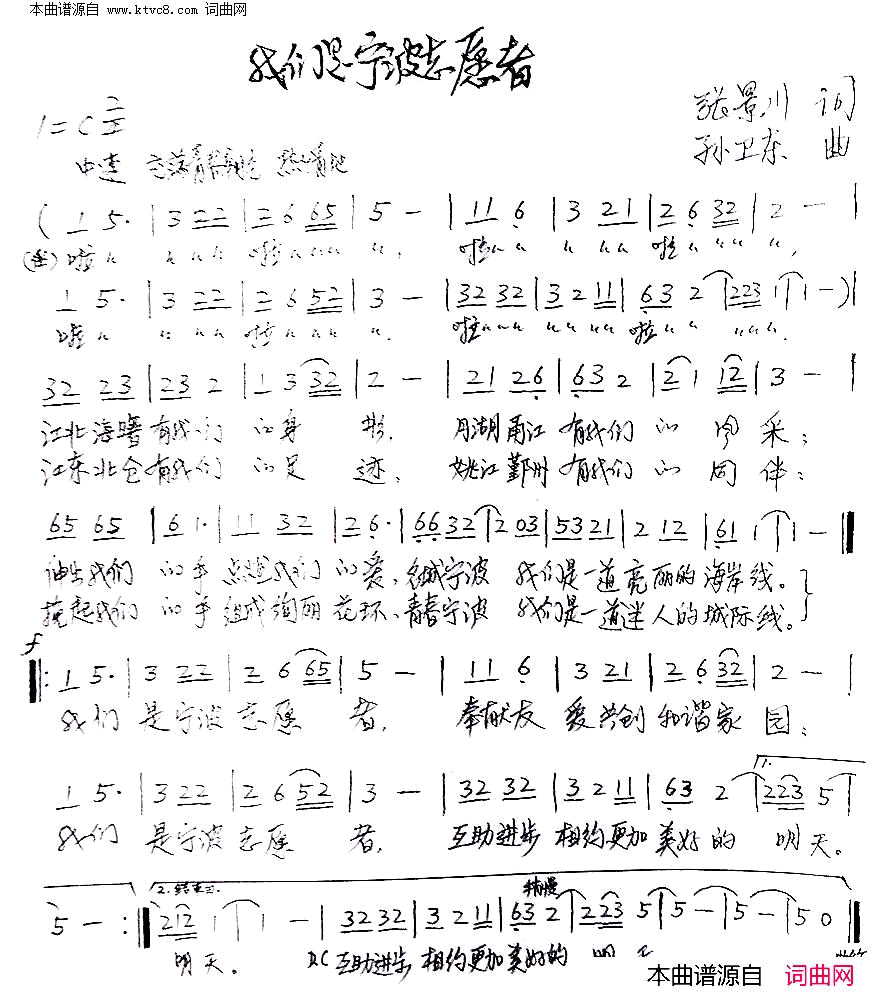 本曲谱源自 www.ktvc8.com 词曲网
我们是宁波志愿者
张景川 词
1=C 2/4
孙卫东 曲
中速 热情地
( 1 5· | 3 22 | 2 6 65 | 5 — | 11 6 | 3 21 | 2 6 32 | 2 — |
啦 〃 〃 〃〃 啦〃〃〃 〃, 啦〃〃 〃 〃〃 啦〃〃〃 〃,
1 5· | 3 22 | 2 6 52 | 3 — | 32 32 | 3 2 11 | 63 2 | 223 1 | 1 — ) |
啦 〃 〃 〃〃 啦〃〃〃 〃. 啦〃〃〃 〃〃〃〃 啦〃〃 〃〃〃.
32 23 | 23 2 | 1 3 32 | 2 — | 21 26 | 63 2 | 2 1 12 | 3 — |
江北海曙有我们 的身 影, 月湖甬江 有我们 的 风 采;
江东北仑有我们 的足 迹, 姚江鄞州 有我们 的 同 伴;
65 65 | 61· | 11 32 | 26· | 66 32 | 2 03 | 53 21 | 2 12 | 61 1 | 1 — ‖
伸出我们 的手 点燃我们 的爱,名城宁波 我们是一道亮丽的海岸线。
挽起我们 的手 组成绚丽 花环,青春宁波 我们是一道迷人的城际线。
f
‖: 1 5· | 3 22 | 2 6 65 | 5 — | 11 6 | 3 21 | 2 6 32 | 2 — |
我们 是宁波 志愿 者, 奉献友 爱共创 和谐家 园;
1.
1 5· | 3 22 | 2 6 52 | 3 — | 32 32 | 3 2 11 | 63 2 | 223 5 |
我们 是宁波 志愿 者, 互助进步 相约更加美好的 明天。
2.结束句. 稍慢
5 — :‖ 212 1 | 1 — | 32 32 | 3 2 11 | 63 2 | 223 5 | 5 — | 5 — | 5 0 ‖
明天。 D.C 互助进步 相约更加美好的 明 天
本曲谱源自 词曲网